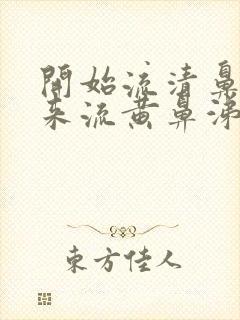 開始流清鼻
来流黄鼻涕
東方佳人